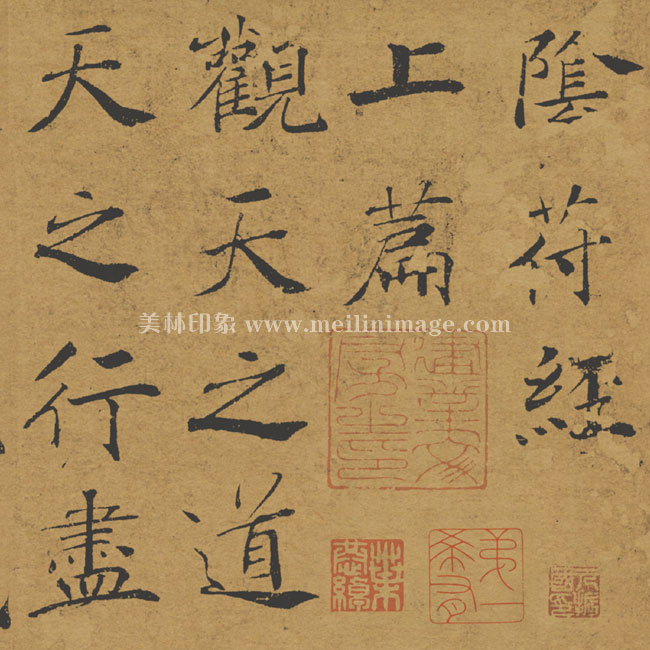 陰符經
上篇
觀天之道
天之行盡
建業文房之印
美林印象 www.meilinimage.com